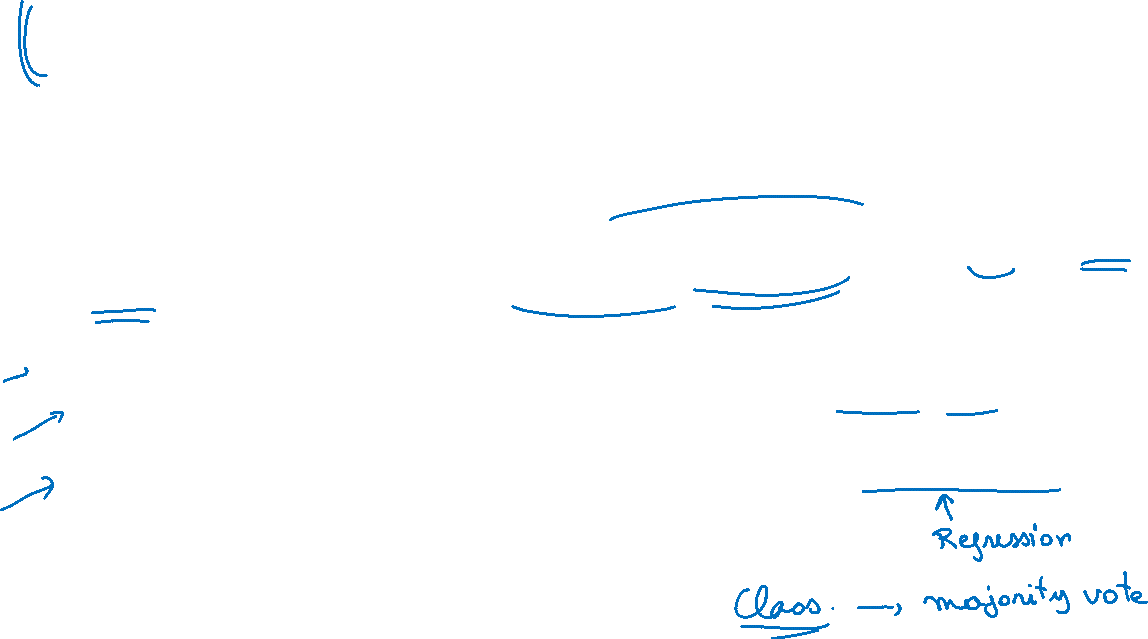 Regression
Class. → majority vote